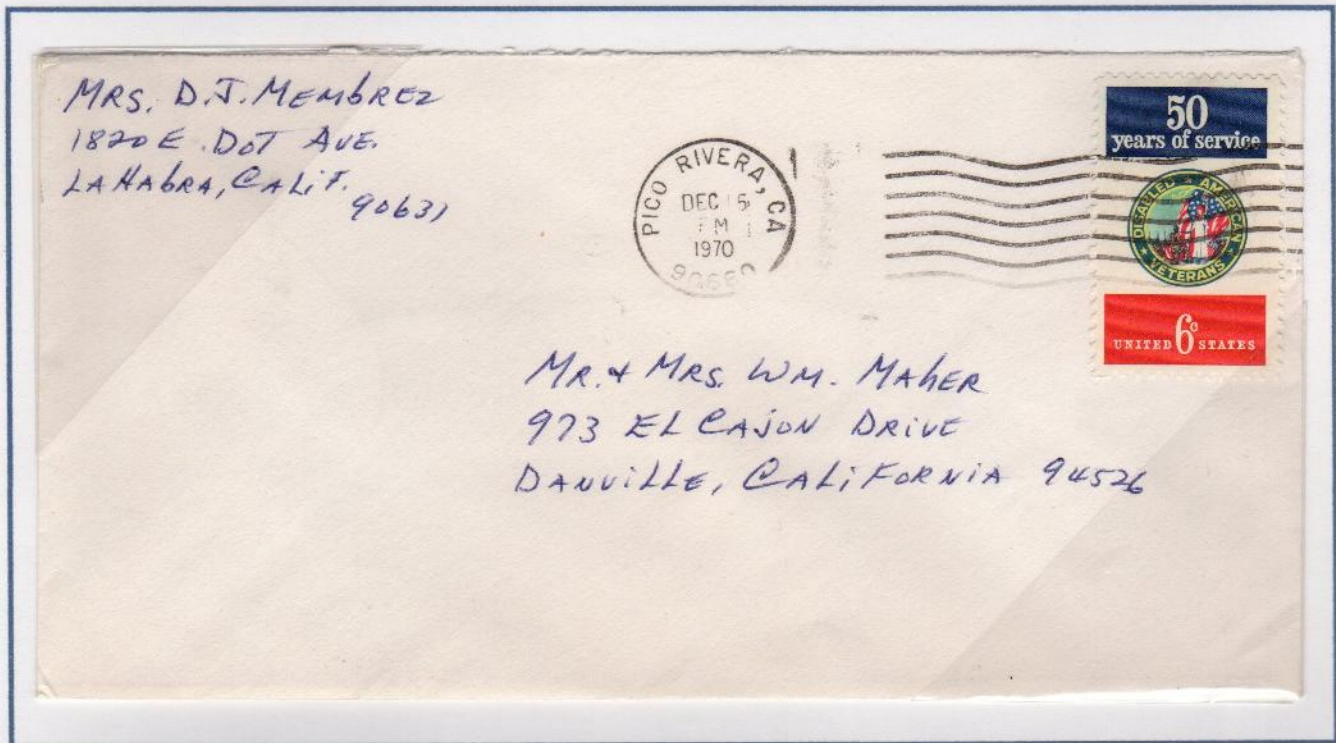 MRS. D.J. MEMBREZ
1820 E. DOT AVE.
LA HABRA, CALIF.
90631
PICO RIVERA, CA
DEC 15
PM
1970
90660
50
years of service
DISABLED AMERICAN
VETERANS
UNITED 6c STATES
MR. & MRS. WM. MAHER
973 EL CAJON DRIVE
DANVILLE, CALIFORNIA 94526